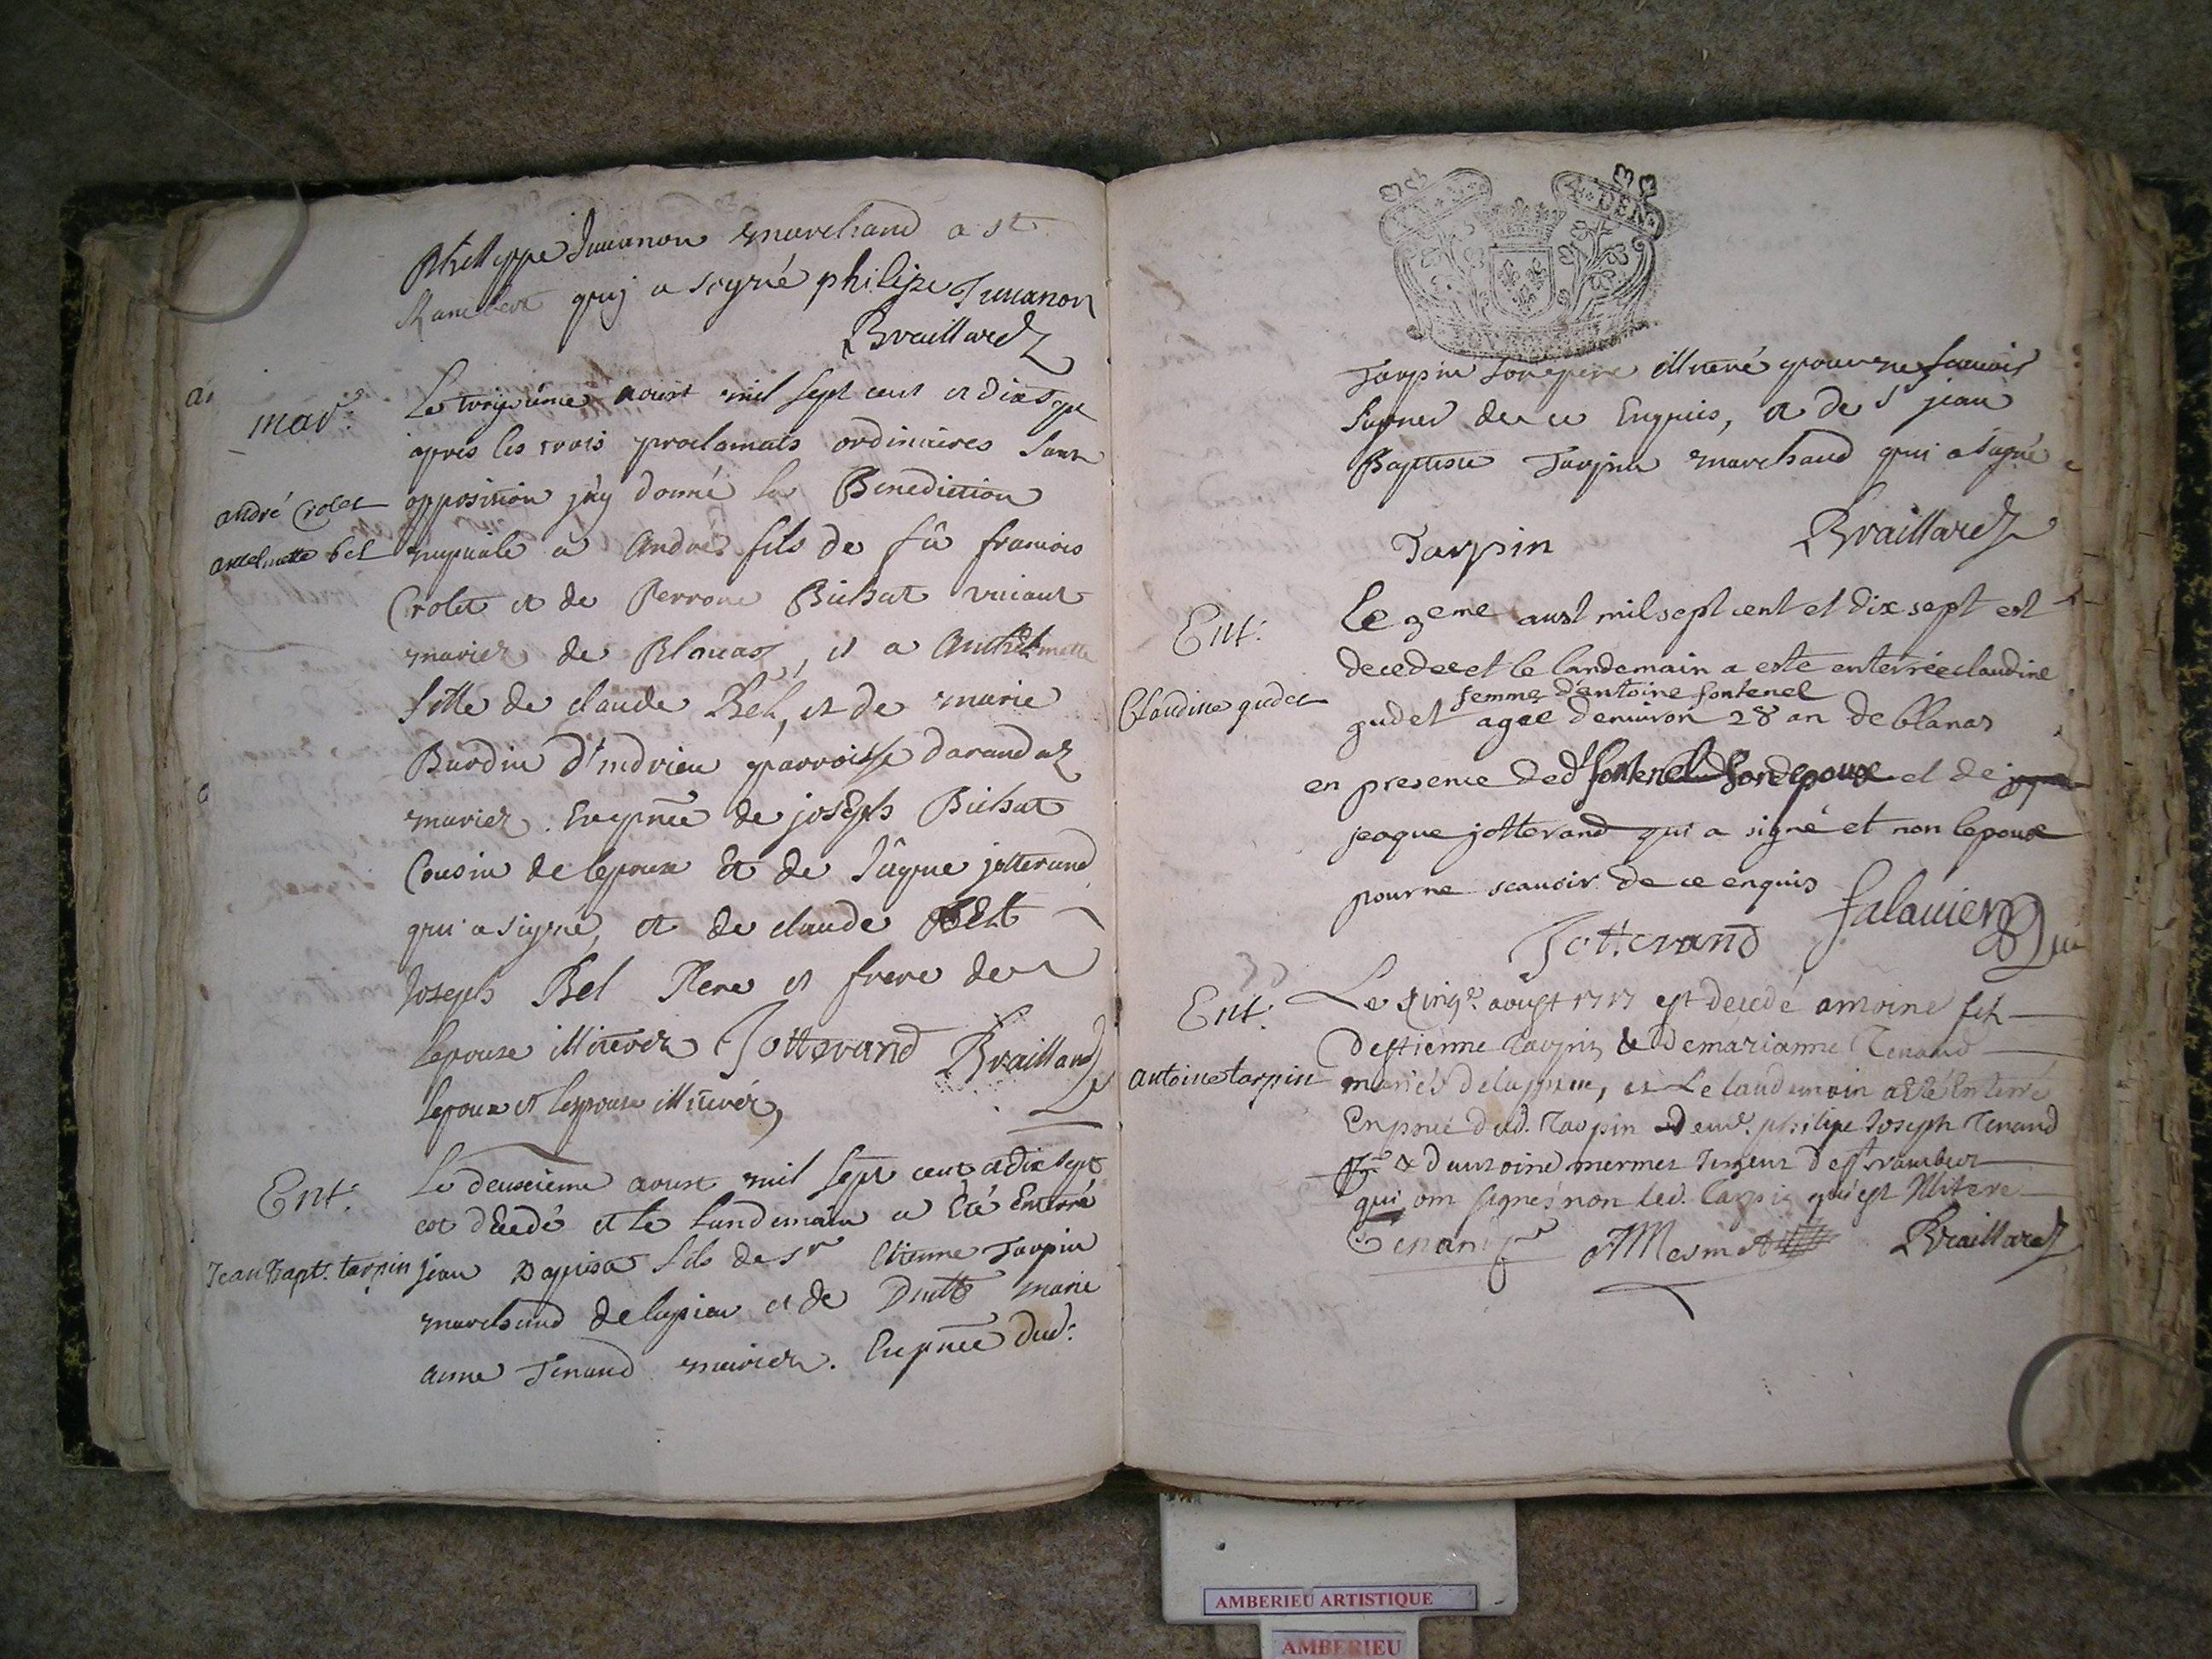 Philippe Juuanon marchand a st
Rambert quj a signé philipe Juuanon
Braillard
mar:
Le troisième aoust mil sept cent et dix sept
apres les trois proclamats ordinaires sans
opposition j'ay donné la Benediction
andré Crolet
antelmette bel
nuptiale a André fils de fû francois
Crolet et de Perrone Bichat viuant
mariez de Blanas, et a Anthelmette
fille de claude Bel, et de marie
Burdin d'Indrieu parroisse darandaz
mariez. En pñce de joseph Bichat
Cousin de lepoux Et de Jâque jotterand
qui a signé, et de claude BEL et
Joseph Bel Pere et frere de
Lepouse illiterez Jotterand Braillard
lepoux et lespouse illiterez,
Ent:
Le deuxieme aoust mil sept cent et dix sept
est décedé et le landemain a Eté Enterré
Jean Bapt. tarpin
jean Baptiste fils de Sr Etienne Tarpin
marchand de lupieu et de Dlle marie
anne Tenand mariez. En pñce dud:
4 DEN
Tarpin son pere illiteré pour ne scauoir
signer de ce Enquis, et de Sr jean
Baptiste Tarpin marchand qui a signé
Tarpin Braillard
Ent:
Le 3eme aust mil sept cent et dix sept est
decedee et le landemain a este enterrée claudine
Claudine gudet
femme d'antoine fontenel
gudet agee denuiron 28 an de blanas
en presence de d fontenel son epoux et de
jeaque jotterand qui a signé et non lepoux
pour ne scauoir de ce enquis
Jotterand falauier
Ent:
Le Cinqe. aoust 1717 est decedé antoine fils
destienne tarpin & de marianne Tenand
antoine tarpin
mariés de luppieu, et Le landemain a Eté Enterré
En pñce dud. tarpin de philipe Joseph Tenand
& d'antoine mermet de st rambert
qui ont signés non led. tarpin qui est illitere
Tenand AMermet Braillard
AMBERIEU ARTISTIQUE
AMBERIEU